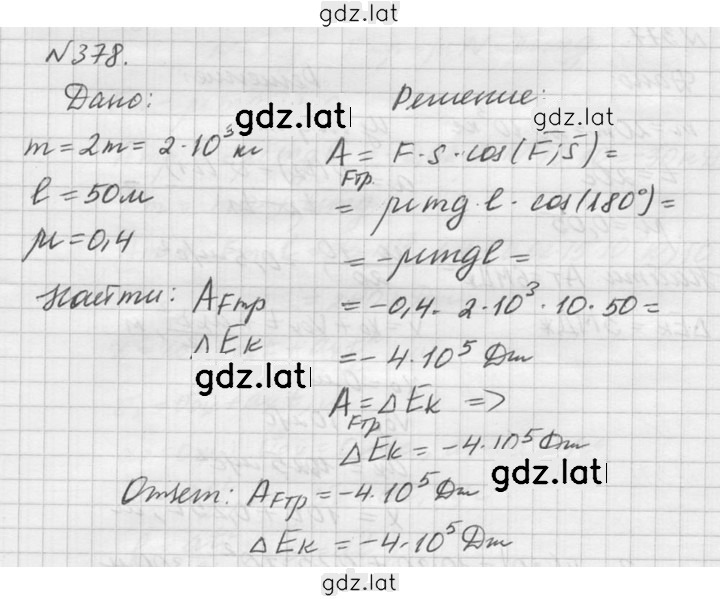 gdz.lat
№378.
Дано:
m = 2т = 2·10³ кг
l = 50м
μ = 0,4
Найти: AFтр
ΔEк
gdz.lat
gdz.lat
Решение:
gdz.lat
AFтр. = F·s·cos(F;s) =
= μmg·l·cos(180°) =
= -μmgl =
= -0,4·2·10³·10·50 =
= -4·10⁵ Дж
AFтр = ΔEк =>
ΔEк = -4·10⁵ Дж
gdz.lat
Ответ: AFтр = -4·10⁵ Дж
ΔEк = -4·10⁵ Дж
gdz.lat